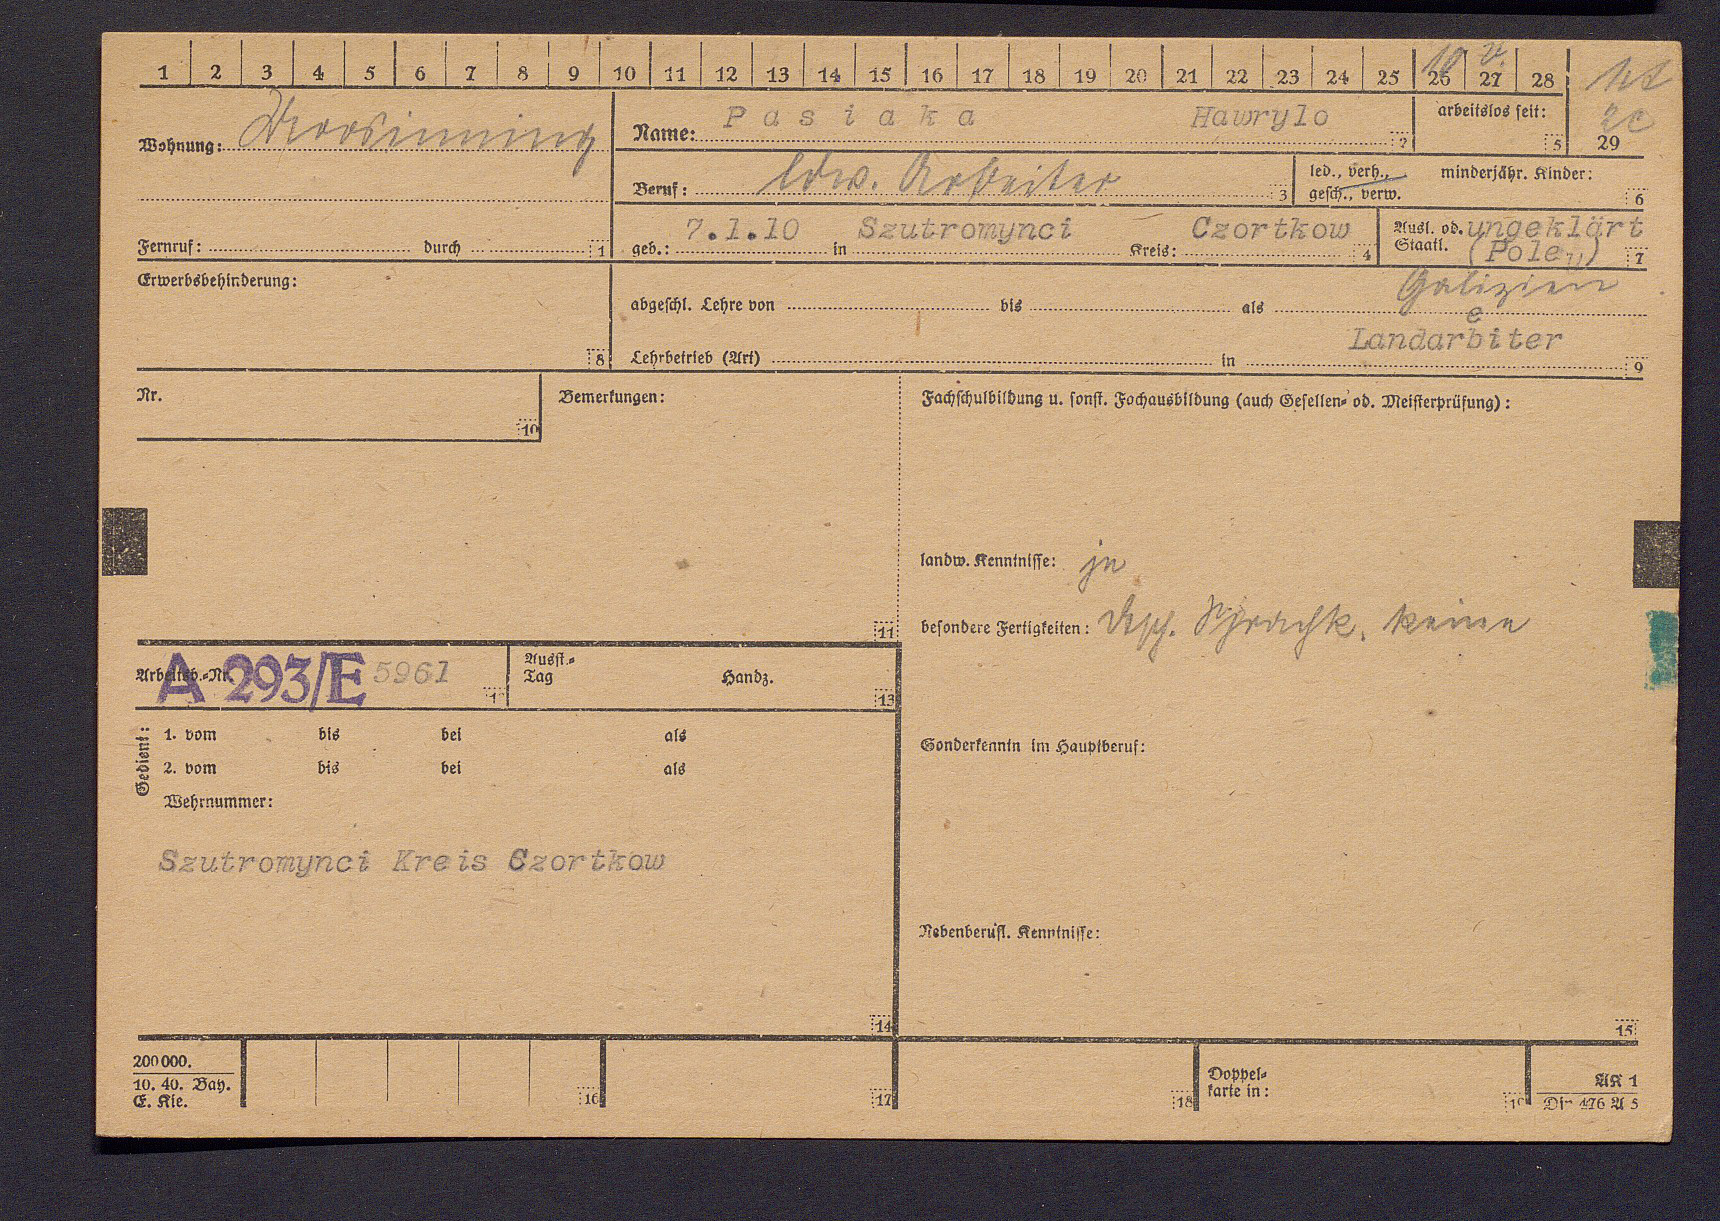 1 2 3 4 5 6 7 8 9 10 11 12 13 14 15 16 17 18 19 20 21 22 23 24 25 26 27 28
Wohnung:
Name: Pasiaka Hawrylo 2
arbeitslos seit: 5
29
Beruf: ldw. Arbeiter 3
led., verh.,
gesch., verw.
minderjähr. Kinder: 6
Fernruf: durch 1
geb.: 7.1.10 in Szutromynci Kreis: Czortkow 4
Ausl. od. ungeklärt
Staatl. (Pole) 7
Galizien
Erwerbsbehinderung: 8
abgeschl. Lehre von bis als
Landarbeiter
Lehrbetrieb (Art) in 9
Nr. 10
Bemerkungen: 11
Fachschulbildung u. sonst. Fochausbildung (auch Gesellen- od. Meisterprüfung):
landw. Kenntnisse: ja
besondere Fertigkeiten: Sprachk. keine
Arbeitsb.-Nr. A 293/E 5961
Ausst.-
Tag Handz. 13
Gedient:
1. vom bis bei als
2. vom bis bei als
Wehrnummer:
Szutromynci Kreis Czortkow
14
Sonderkenntn im Hauptberuf:
Nebenberufl. Kenntnisse:
15
200 000.
10. 40. Bay.
E. Kie.
16 17 18
Doppel-
karte in:
19
AK 1
Din 476 A 5